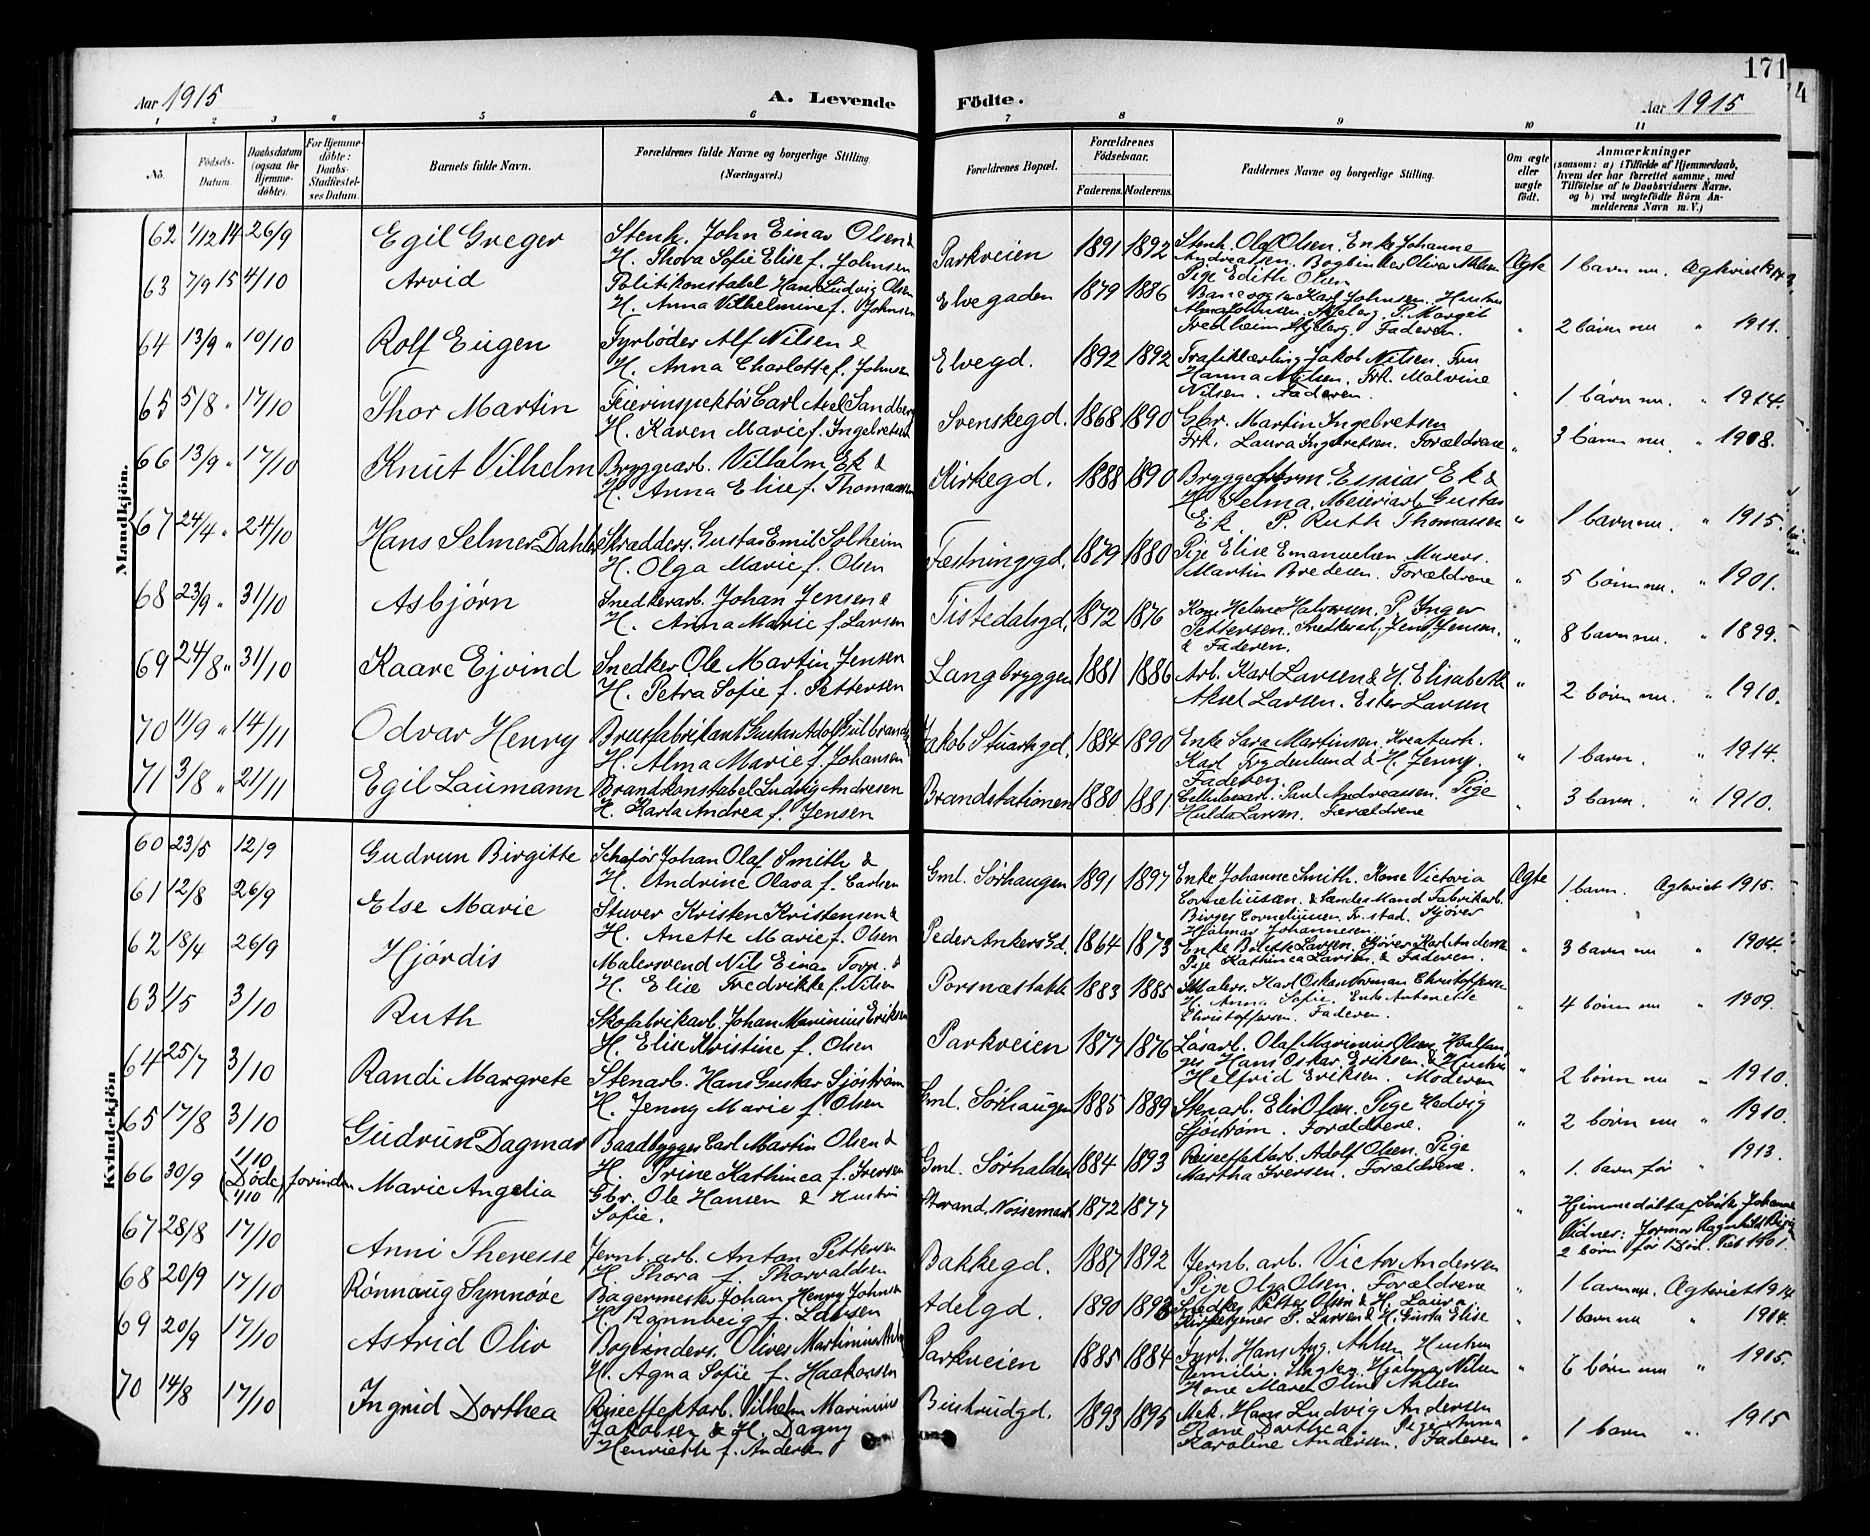 171
Aar 1915 A. Levende Födte. Aar 1915
1 2 3 4 5 6 7 8 9 10 11
No. Födsels-Datum. Daabsdatum (ogsaa for Hjemmedöbte). For Hjemmedöbte: Daabs-Stadfæstelses Datum. Barnets fulde Navn. Forældrenes fulde Navne og borgerlige Stilling (Næringsvei.) Forældrenes Bopæl. Forældrenes Födselsaar. Faderens. Moderens. Faddernes Navne og borgerlige Stilling. Om ægte eller uægte födt. Anmærkninger (saasom: a) i Tilfælde af Hjemmedaab, hvem der har forrettet samme, med Tilföielse af to Daabsvidners Navne, og b) ved uægtefödte Börn Anmelderens Navn m. V.)
Mandkjön.
62 1/12 14 26/9 Egil Greger Stenh. John Einar Olsen & H. Thora Sofie Elise f. Johnsen Parkveien 1891 1892 Stenh. Olaf Olsen. Enke Johanne Andreassen. Bogbinder Oliver Nilsen Pige Edith Olsen Ægte 1 barn nu. Ægteviet
63 7/9 15 4/10 Arvid Politikonstabel Hans Ludvig Olsen H. Anna Vilhelmine f. Johnsen Elvegaden 1879 1886 Banevogter Karl Johnsen. Hustru P. Margit Fredheim Faderen. " 2 børn nu " 1911.
64 13/9 " 10/10 Rolf Eugen Fyrbøder Alf Nilsen & H. Anna Charlotte f. Johnsen Elvegd. 1892 1892 Trafiklærling Jakob Nilsen. Fru Hanna Nilsen. Frk. Malvine Nilsen. Faderen. " 1 barn nu. " 1914.
65 5/8 " 17/10 Thor Martin Feierinspektør Carl Axel Sandberg H. Karen Marie f. Ingebretsen Svenskegd. 1868 1890 Gbr. Martin Ingebretsen Frk. Laura Ingebretsen. Forældrene " 3 børn nu " 1908.
66 13/9 " 17/10 Knut Vilhelm Bryggearb. Vilhelm Ek & H. Anna Elise f. Thomassen Kirkegd. 1888 1890 Bryggeform. Esaias Ek & H. Selma. Meieriarb. Gustav Ek P. Ruth Thomassen " 1 barn nu. " 1915.
67 24/4 " 24/10 Hans Selmer Dahler Skrædders. Gustav Emil Solheim H. Olga Marie f. Olsen Fæstningsgd. 1879 1880 Pige Elise Emanuelsen Murers. Martin Bredesen. Forældrene " 5 børn nu. " 1901.
68 23/9 " 31/10 Asbjørn Snedkerarb. Johan Jensen & H. Anna Marie f. Larsen Tistedalsgd. 1872 1876 Kone Helene Halvorsen. P. Inger Pettersen. Snedkerarb. Jens Jensen. & Faderen. " 8 barn nu. " 1899.
69 24/8 " 31/10 Kaare Ejvind Snedker Ole Martin Jensen H. Petra Sofie f. Pettersen Langbryggen 1881 1886 Arb. Karl Larsen & H. Elisabeth Aksel Larsen. Ester Larsen " 2 børn nu. " 1910.
70 11/9 " 14/11 Odvar Henry Brusfabrikant Gustav Adolf Gulbrandsen H. Alma Marie f. Johansen Jakob Stuartsgd. 1884 1890 Enke Sara Martinsen. Kreaturh. Karl Frydenlund & H. Jenny. Faderen " 1 barn. " 1914.
71 3/8 " 21/11 Egil Laumann Brandkonstabel Ludvig Andresen H. Karla Andrea f. Jensen Brandstationen 1880 1881 Cellulosearb. Paul Andreassen. Pige Hulda Larsen. Forældrene " 3 barn. " 1910.
Kvindekjön
60 23/5 12/9 Gudrun Birgitte Schafør Johan Olaf Smith & H. Andrine Olava f. Carlsen Gml. Sørhaugen 1891 1897 Enke Johanne Smith. Kone Victoria Corneliusen. & Sandes Mand Fabrikarb. Birger Corneliusen Fr.stad. Kjører Hjalmar Johannesen. Ægte 1 barn. Ægteviet 1915.
61 12/8 26/9 Else Marie Stuver Kristen Kristensen & H. Anette Marie f. Olsen Peder Ankers Gd. 1864 1873 Enke Bolette Larsen. Kjører Karl Andersen Pige Kathinca Larsen. & Faderen. " 3 barn nu " 1904.
62 18/4 26/9 Hjørdis Malersvend Nils Einar Torp. & H. Elise Fredrikke f. Nilsen Porsnæsløkke 1883 1885 Malers. Karl Oskar Norman Christoffersen H. Anna Sofie. Enke Antonette Christoffersen. Faderen. " 4 børn nu " 1909.
63 1/5 3/10 Ruth Skofabrikarb. Johan Marinius Eriksen H. Elise Kristine f. Olsen Parkveien 1877 1876 Løsarb. Olaf Marinius Olsen, Hans Oskar Eriksen & Hustru Helfrid Eriksen. Moderen " 2 børn nu " 1910.
64 25/7 3/10 Randi Margrete Stenarb. Hans Gustav Sjøstrøm H. Jenny Marie f. Olsen Gml. Sørhaugen 1885 1889 Stenarb. Eli Olsen. Pige Hedvig Sjøstrøm. Forældrene. " 2 børn nu " 1910.
65 17/8 3/10 Gudrun Dagmar Baadbygger Carl Martin Olsen & H. Trine Kathinca f. Iversen Gml. Sørhalden 1884 1893 Reiseeffektarb. Adolf Olsen. Pige Martha Iversen. Forældrene. " 1. barn før " 1913.
66 30/9 1/10 (Døde 1/10) forinden Marie Angelia Gbr. Ole Hansen & Hustru Sofie. Strand, Nössemark 1872 1877 " Hjemmedøbt af Johanne Vidner: Jormor Ragnhild 2 børn før Død. Viet 1901
67 28/8 17/10 Anni Theresse Jernb. arb. Anton Pettersen H. Thora f. Thorvaldsen Bakkegd. 1887 1892 Jernb. arb. Victor Andersen Pige Olga Olsen. Forældrene " 1 barn nu. Ægteviet 1914
68 20/9 17/10 Rønnaug Synnøve Bagermester Johan Henry Johnsen H. Rannveig f. Larsen Adelgd. 1890 1893 Snedker Petter Olsen & H. Laura Kirketjener P. Larsen & H. Gusta Elise " 1 barn nu " 1914.
69 20/9 17/10 Astrid Oliv Bogbinders. Oliver Martinius H. Agna Sofie f. Haakonsen Parkveien 1885 1884 Fyrb. Hans Aug. Ahlsen Hustru Emilie. Slagter Hjalmar Nilsen Kone Maren Oline Ahlsen " 6 børn nu " 1905.
70 14/8 17/10 Ingrid Dorthea Reiseeffektarb. Vilhelm Marinius Jakobsen & H. Dagny Henriette f. Andersen Buskrudgd. 1893 1895 Mek. Hans Ludvig Andersen Kone Dorthea Pige Anna Karoline Andersen. Faderen " 1 barn " 1915